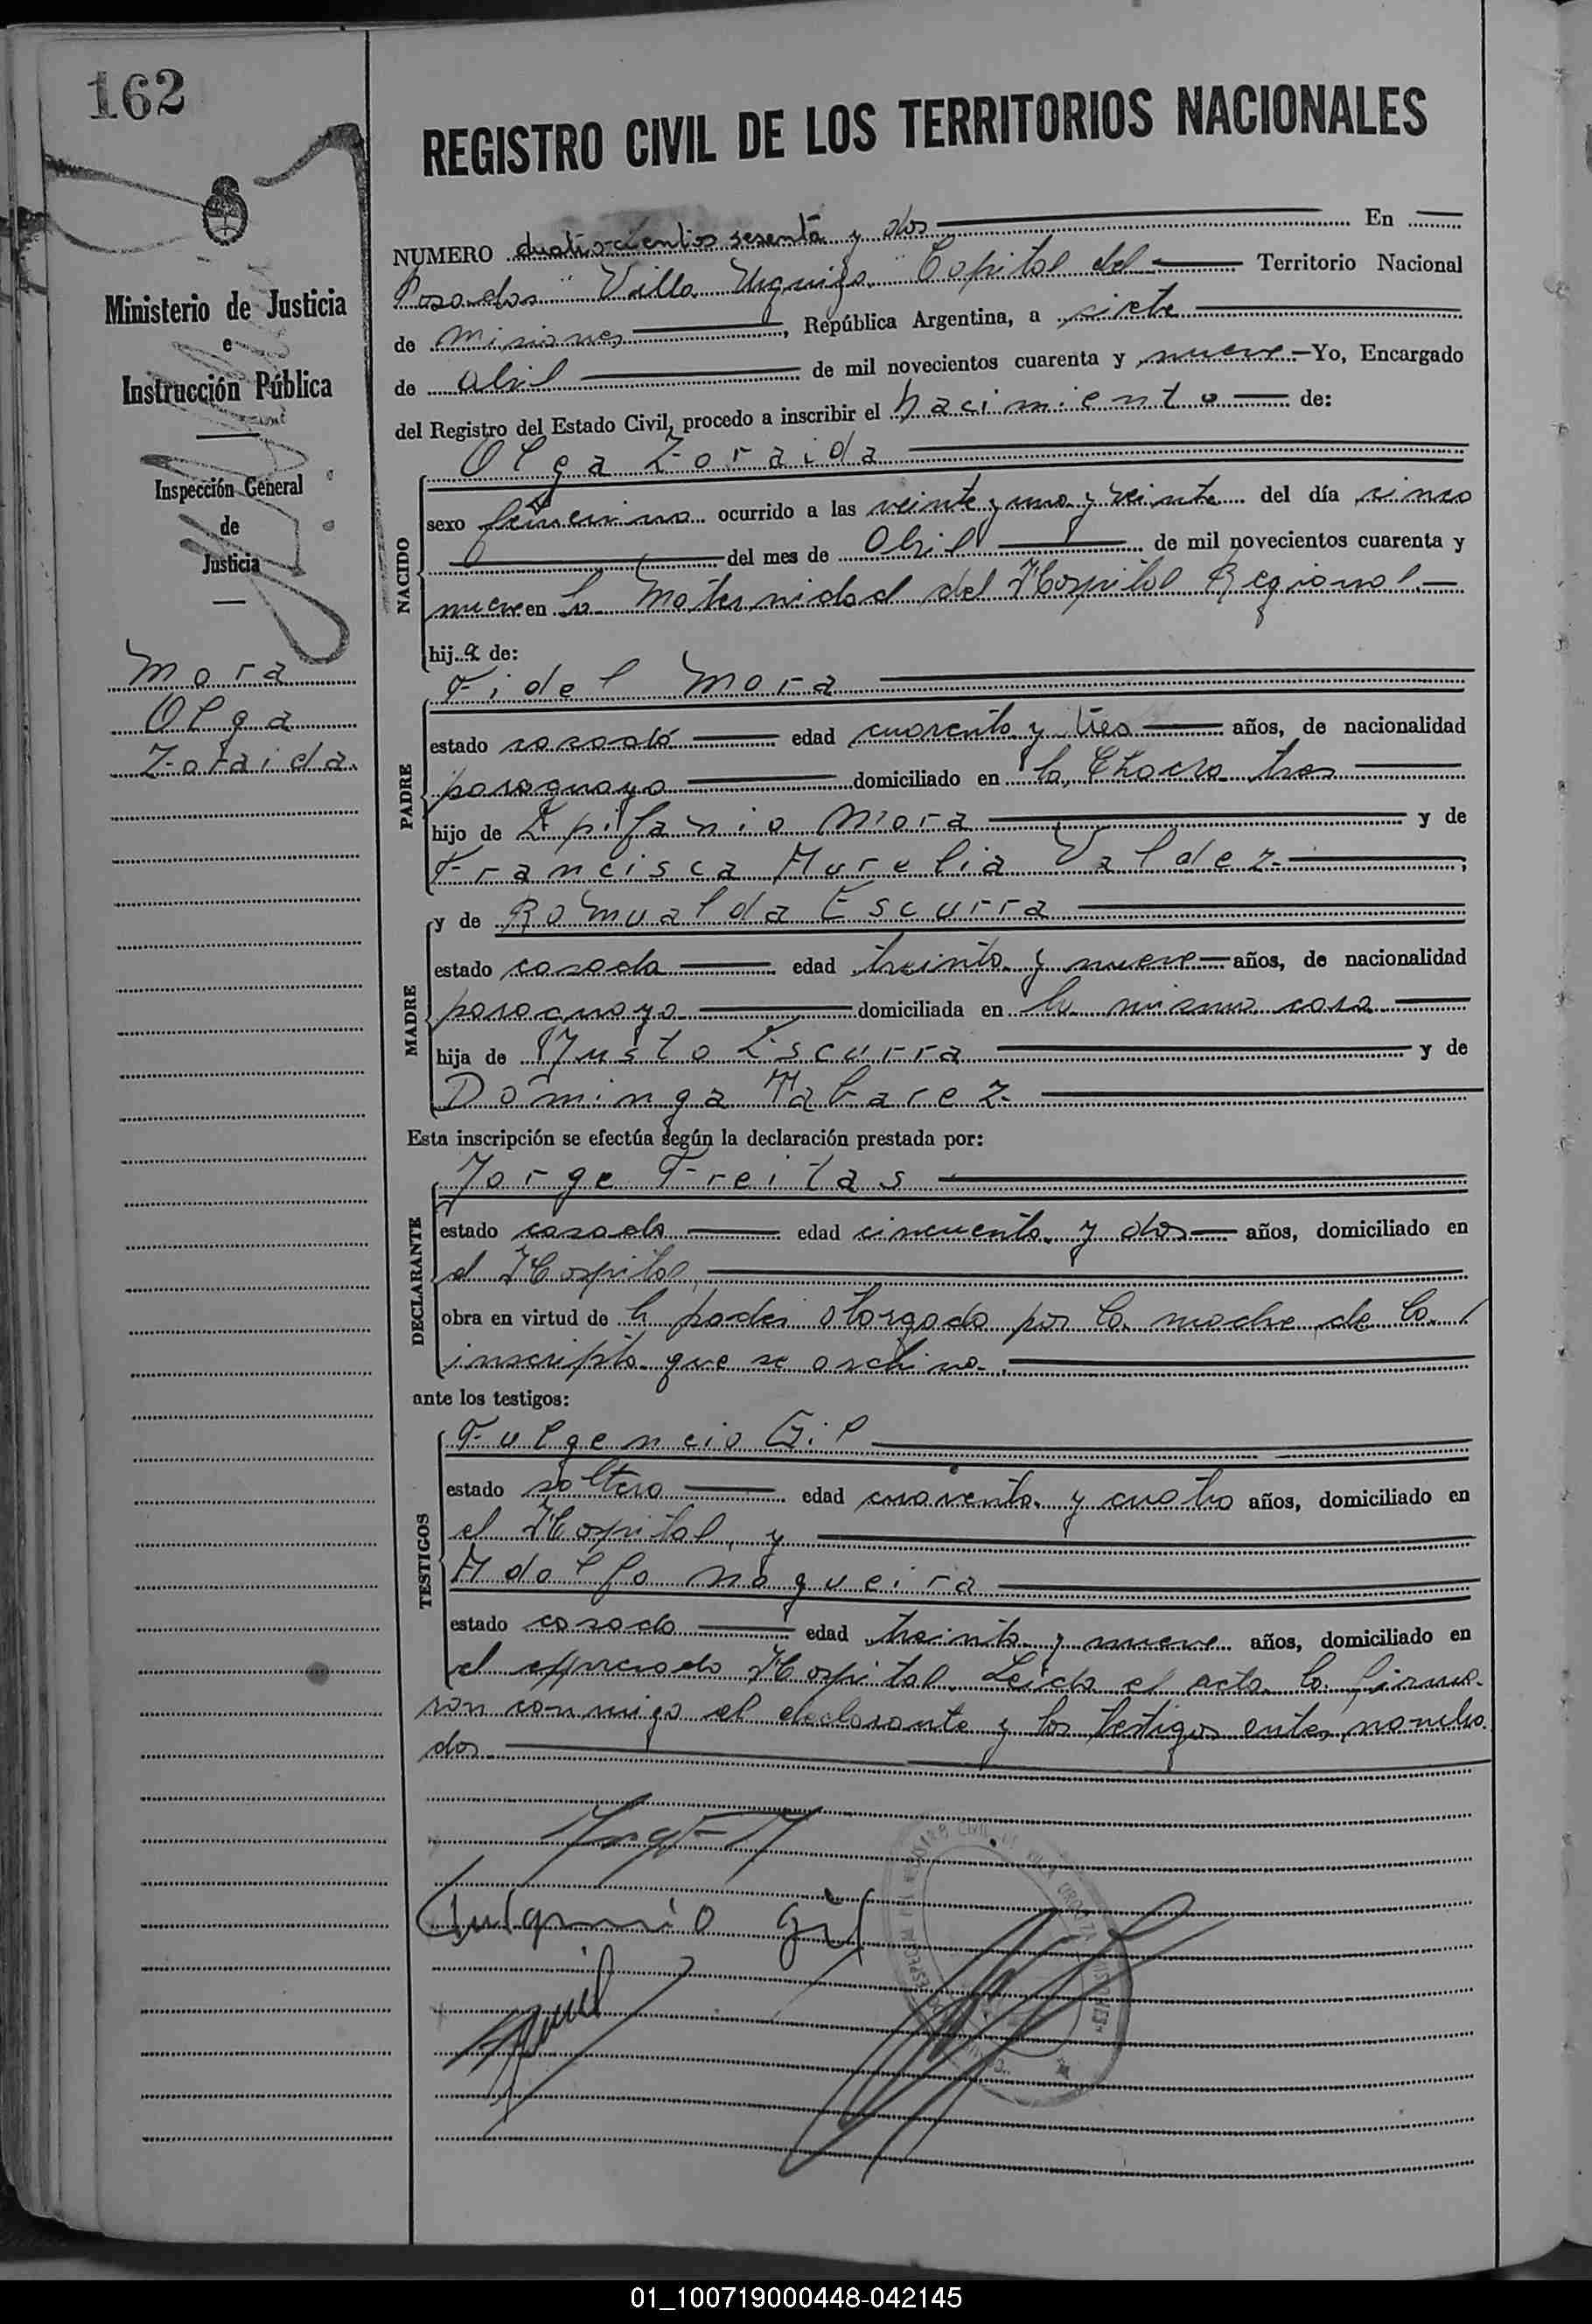 162
REGISTRO CIVIL DE LOS TERRITORIOS NACIONALES
NUMERO cuatrocientos sesenta y dos En
Posadas "Villa Urquiza" Capital del Territorio Nacional
de Misiones, República Argentina, a siete
de abril de mil novecientos cuarenta y nueve.-Yo, Encargado
del Registro del Estado Civil, procedo a inscribir el nacimiento de:
Ministerio de Justicia
e
Instrucción Pública
Inspección General
de
Justicia
Mora
Olga
Zoraida.
NACIDO
Olga Zoraida
sexo femenino ocurrido a las veinte y una y veinte del día cinco
del mes de Abril de mil novecientos cuarenta y
nueve en la Maternidad del Hospital Regional
hija de:
PADRE
Fidel Mora
estado casado edad cuarenta y tres años, de nacionalidad
paraguaya domiciliado en la Chacra tres
hijo de Epifanio Mora y de
Francisca Aurelia Valdez;
MADRE
y de Romualda Escurra
estado casada edad treinta y nueve años, de nacionalidad
paraguaya domiciliada en la misma casa
hija de Justo Escurra y de
Dominga Tabarez
Esta inscripción se efectúa según la declaración prestada por:
DECLARANTE
Jorge Freitas
estado casado edad cincuenta y dos años, domiciliado en
el Hospital,
obra en virtud de poder otorgado por la madre de la
inscripta que se archiva.
ante los testigos:
TESTIGOS
Fulgencio Gil
estado soltero edad cuarenta y cuatro años, domiciliado en
el Hospital, y
Adolfo Nogueira
estado casado edad treinta y nueve años, domiciliado en
el expresado Hospital. Leida el acta la firma-
ron conmigo el declarante y los testigos antes nombra
dos.
Fulgencio Gil
01_100719000448-042145